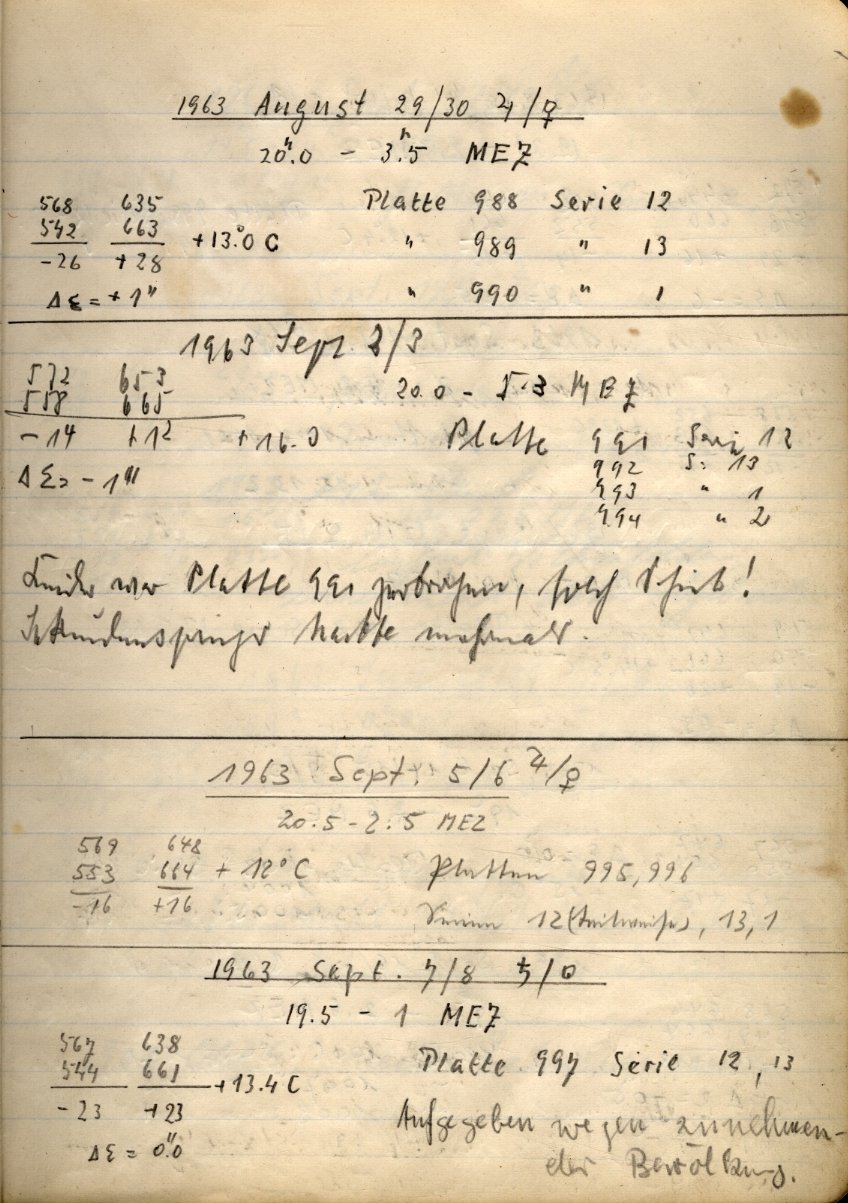 1963 August 29/30 ♃/♀
20ʰ.0 - 3ʰ.5 MEZ
568 635 Platte 988 Serie 12
542 663 +13°.0 C " 989 " 13
-26 +28
Δε = + 1" " 990 " 1
1963 Sept 2/3
572 653 20.0 - 5.3 MEZ
558 665
-14 +12 + 16.0 Platte 991 Serie 12
Δε = - 1" 992 S: 13
993 " 1
994 " 2
Leider war Platte 991 zerbrochen, solch Schiet!
Sekundenspringer hackte mehrmals.
1963 Sept. 5/6 ♃/♀
20.5 - 2.5 MEZ
569 648
553 664 + 12° C Platten 995, 996
-16 +16
Serien 12 (teilweise), 13, 1
1963 Sept. 7/8 ♄/☉
19.5 - 1 MEZ
567 638
544 661 +13.4 C Platte 997 Serie 12, 13
-23 +23
Aufgegeben wegen zunehmen-
Δε = 0".0
der Bewölkung.